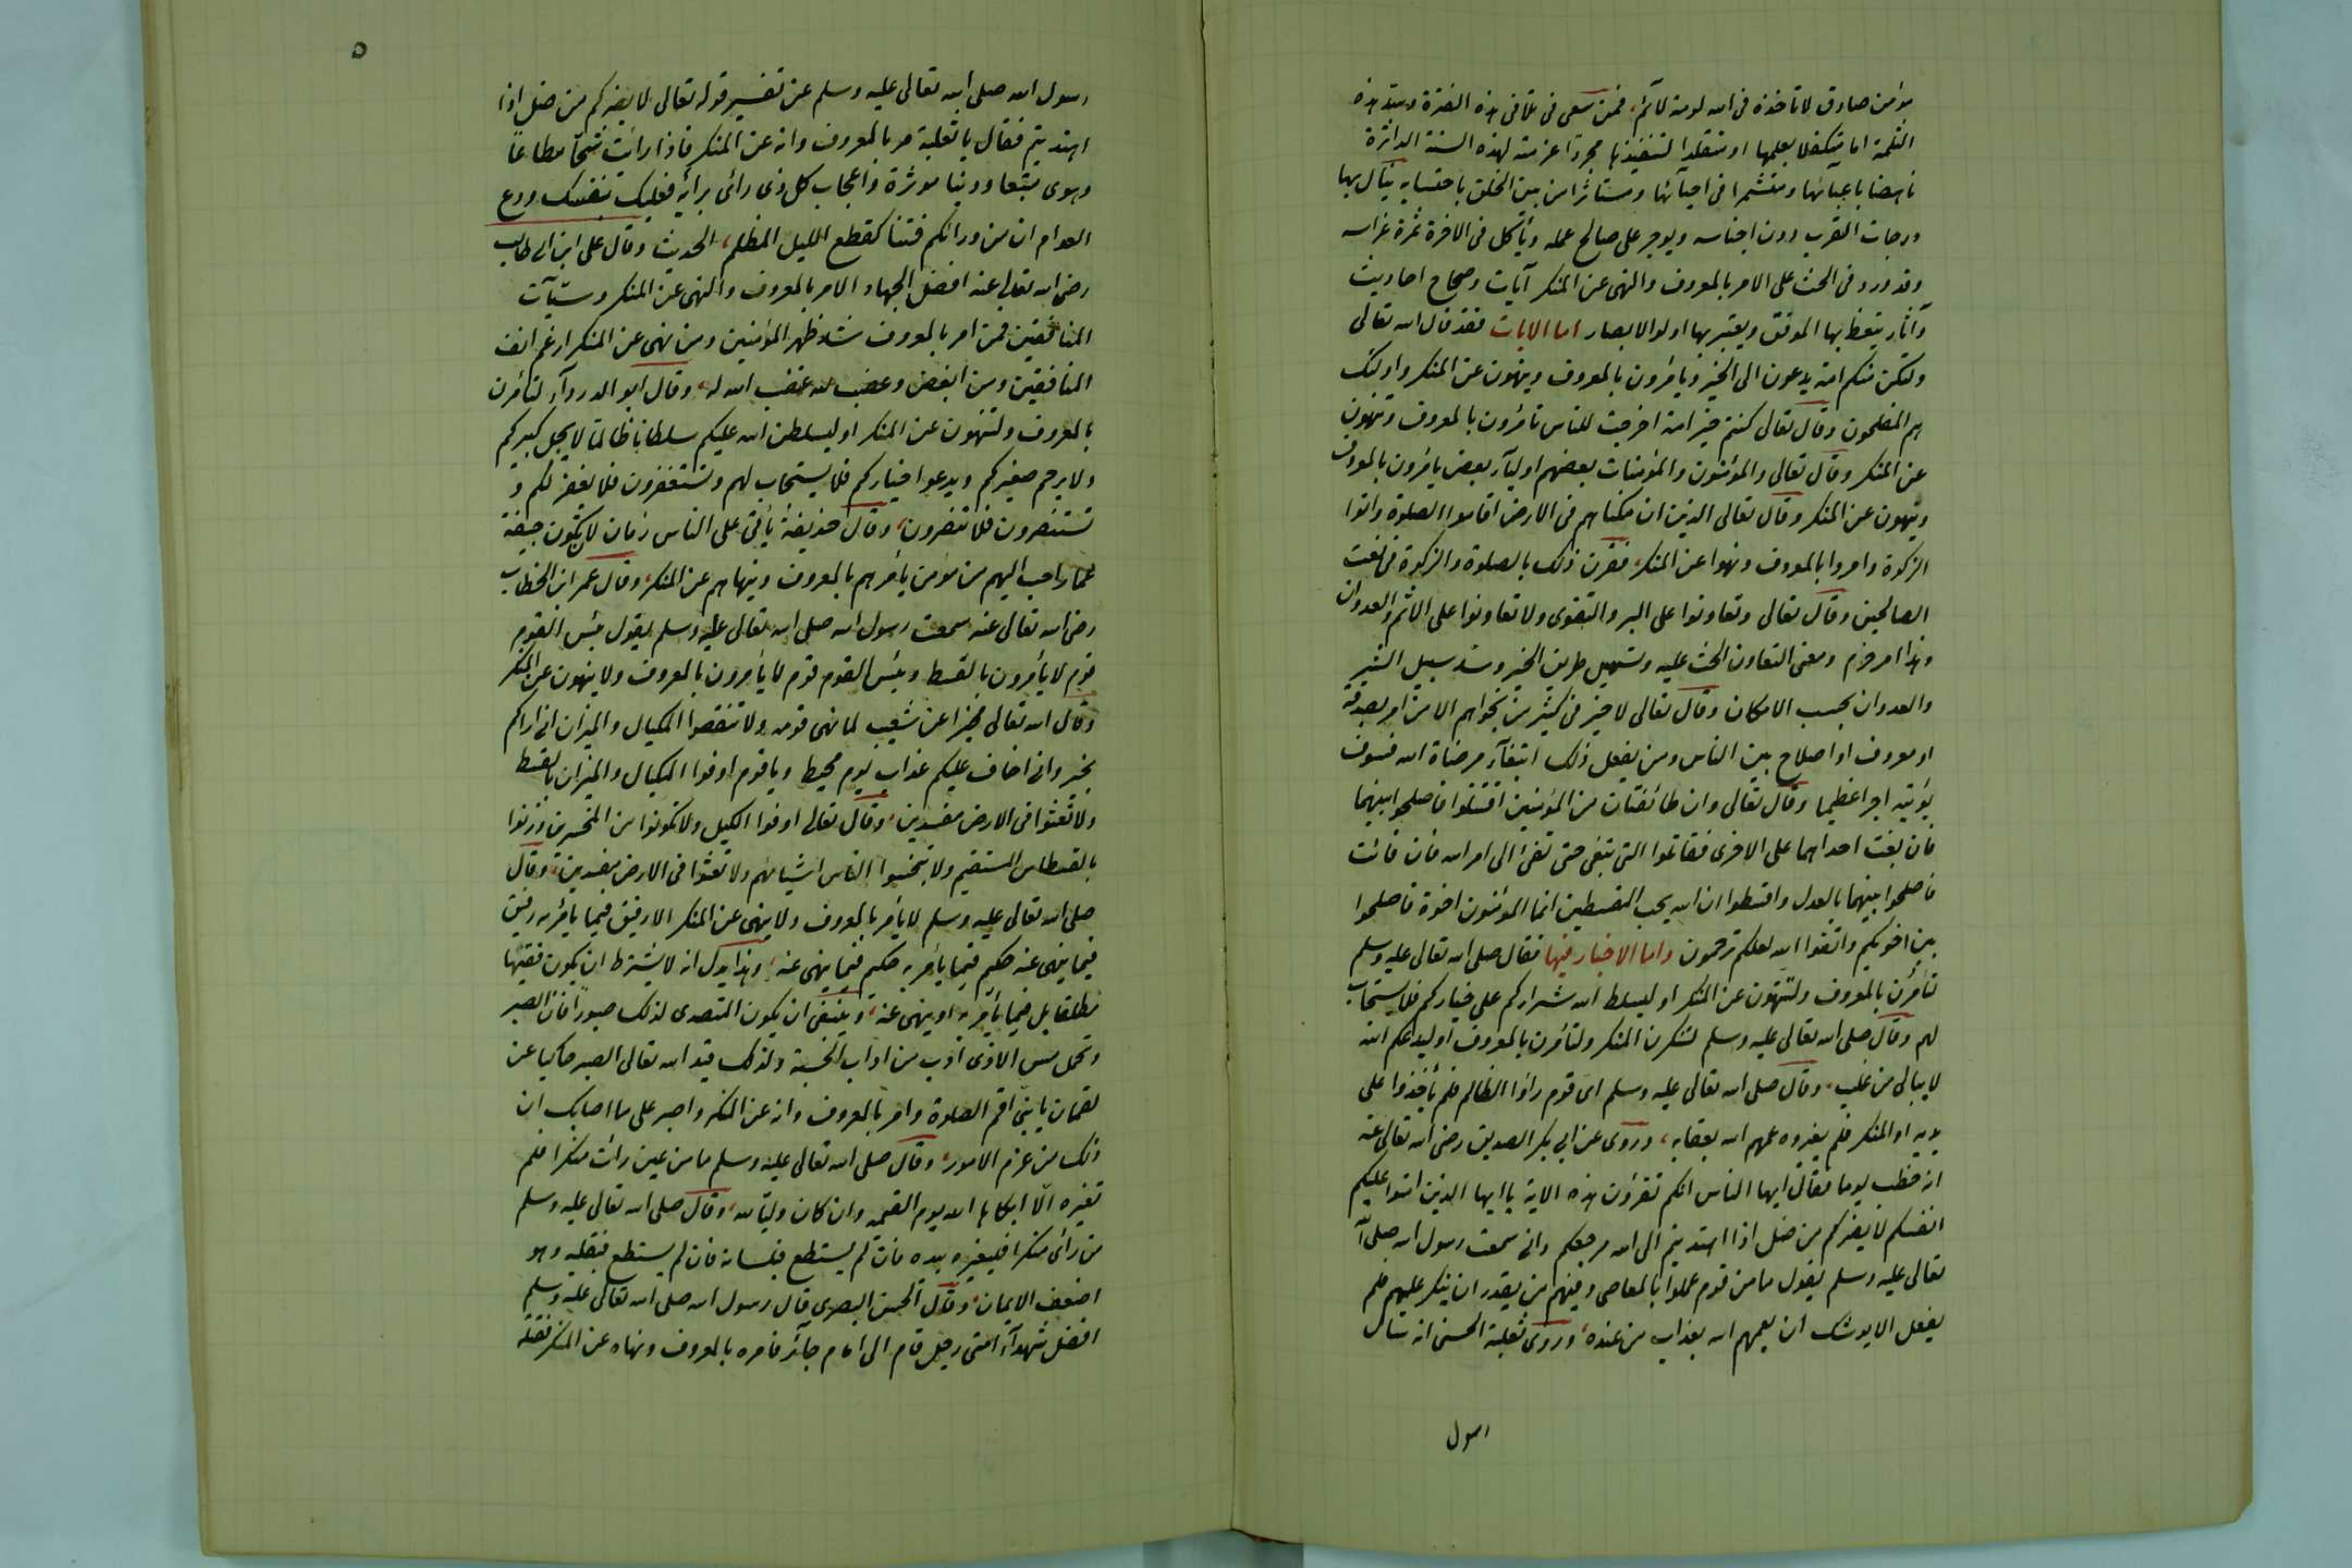 مؤمن صادق لا تأخذه فى الله لومة لائم، فمن سعى فى تلافى هذه الفترة وسد هذه
الثلمة اما متكفلا بعلمها او متقلدا لتنفيذها مجردا عزمته لهذه السنة الداثرة
ناهضا باعبائها ومتشمرا فى احيآئها ومستأثرا من بين الخلق باحتسابه ينال بها
درجات القرب دون اجناسه ويوجر على صالح عمله ويأكل فى الاخرة ثمرة غراسه
وقد ورد فى الحث على الامر بالمعروف والنهى عن المنكر آيات وصحاح احاديث
وآثار يتعظ بها الموفق ويعتبر بها اولوا الابصار اما الايات فقد قال الله تعالى
ولتكن منكم امة يدعون الى الخير ويأمرون بالمعروف وينهون عن المنكر واولئك
هم المفلحون وقال تعالى كنتم خير امة اخرجت للناس تأمرون بالمعروف وتنهون
عن المنكر وقال تعالى والمؤمنون والمؤمنات بعضهم اوليآء بعض يأمرون بالمعروف
وينهون عن المنكر وقال تعالى الذين ان مكناهم فى الارض اقاموا الصلوة واتوا
الزكوة وامروا بالمعروف ونهوا عن المنكر، فقرن ذلك بالصلوة والزكوة فى نعت
الصالحين وقال تعالى وتعاونوا على البر والتقوى ولا تعاونوا على الاثم والعدوان
وهذا امر جزم ومعنى التعاون الحث عليه وتسهيل طريق الخير وسد سبيل الشر
والعدوان بحسب الامكان وقال تعالى لا خير فى كثير من نجواهم الا من امر بصدقة
او معروف او اصلاح بين الناس ومن يفعل ذلك ابتغآء مرضاة الله فسوف
يؤتيه اجرا عظيما وقال تعالى وان طائفتان من المؤمنين اقتتلوا فاصلحوا بينهما
فان بغت احداهما على الاخرى فقاتلوا التى تبغى حتى تفئ الى امر الله فان فائت
فاصلحوا بينهما بالعدل واقسطوا ان الله يحب المقسطين انما المؤمنون اخوة فاصلحوا
بين اخويكم واتقوا الله لعلكم ترحمون واما الاخبار فيها فقال صلى الله تعالى عليه وسلم
لتأمرن بالمعروف ولتنهون عن المنكر او ليسلط الله شراركم على خياركم فلا يستجاب
لهم وقال صلى الله تعالى عليه وسلم لتنكرن المنكر ولتأمرن بالمعروف او ليدعكم الله
لا يبالى من غلب، وقال صلى الله تعالى عليه وسلم اى قوم رأوا الظالم فلم يأخذوا على
يديه او المنكر فلم يغيروه عمهم الله بعقابه، وروى عن ابى بكر الصديق رضى الله تعالى عنه
انه خطب يوما فقال ايها الناس انكم تقرؤن هذه الاية يا ايها الذين امنوا عليكم
انفسكم لا يضركم من ضل اذا اهتديتم الى الله مرجعكم وانى سمعت رسول الله صلى الله
تعالى عليه وسلم يقول ما من قوم عملوا بالمعاصى وفيهم من يقدر ان ينكر عليهم فلم
يفعل الا يوشك ان يعمهم الله بعذاب من عنده، وروى ثعلبة الخشنى انه سأل
رسول
٥
رسول الله صلى الله تعالى عليه وسلم عن تفسير قوله تعالى لا يضركم من ضل اذا
اهتديتم فقال يا ثعلبة مر بالمعروف وانه عن المنكر فاذا رأيت شحا مطاعا
وهوى متبعا ودنيا موثرة واعجاب كل ذى رائ برائه فعليك بنفسك ودع
العوام ان من ورائكم فتنا كقطع الليل المظلم، الحديث وقال على ابن ابى طالب
رضى الله تعالى عنه افضل الجهاد الامر بالمعروف والنهى عن المنكر وشنآت
المنافقين فمن امر بالمعروف شد ظهر المؤمنين ومن نهى عن المنكر ارغم انف
المنافقين ومن ابغض وغضب لله غضب الله له، وقال ابو الدردآء لتأمرن
بالمعروف ولتنهون عن المنكر او ليسلطن الله عليكم سلطانا ظالما لا يجل كبيركم
ولا يرحم صغيركم ويدعوا خياركم فلا يستجاب لهم وتستغفرون فلا يغفر لكم و
تستنصرون فلا تنصرون، وقال حذيفة يأتى على الناس زمان لان يكون جيفة
حمار احب اليهم من مؤمن يأمرهم بالمعروف وينهاهم عن المنكر، وقال عمر ابن الخطاب
رضى الله تعالى عنه سمعت رسول الله صلى الله تعالى عليه وسلم يقول بئس القوم
قوم لا يأمرون بالقسط وبئس القوم قوم لا يأمرون بالمعروف ولا ينهون عن المنكر
وقال الله تعالى مخبرا عن شعيب لما نهى قومه ولا تنقصوا المكيال والميزان انى اراكم
بخير وانى اخاف عليكم عذاب يوم محيط ويا قوم اوفوا المكيال والميزان بالقسط
ولا تعثوا فى الارض مفسدين، وقال تعالى اوفوا الكيل ولا تكونوا من المخسرين وزنوا
بالقسطاس المستقيم ولا تبخسوا الناس اشيائهم ولا تعثوا فى الارض مفسدين، وقال
صلى الله تعالى عليه وسلم لا يأمر بالمعروف ولا ينهى عن المنكر الا رفيق فيما يأمر به رفيق
فيما ينهى عنه حكيم فيما يأمر به حكيم فيما ينهى عنه، وهذا يدل انه لا يشترط ان يكون فقيها
مطلقا بل فيما يأمر به او ينهى عنه، وينبغى ان يكون المتصدى لذلك صبورا فان الصبر
وتحمل مس الاذى ادب من اداب الحسبة ولذلك قيد الله تعالى الصبر حاكيا عن
لقمان يا بنى اقم الصلوة وامر بالمعروف وانه عن المنكر واصبر على ما اصابك ان
ذلك من عزم الامور، وقال صلى الله تعالى عليه وسلم ما من عين رأت منكرا فلم
تغيره الا ابكاها الله يوم القيمه وان كان وليا لله، وقال صلى الله تعالى عليه وسلم
من رأى منكرا فليغيره بيده فان لم يستطع فبلسانه فان لم يستطع فبقلبه وهو
اضعف الايمان، وقال الحسن البصرى قال رسول الله صلى الله تعالى عليه وسلم
افضل شهدآء امتى رجل قام الى امام جائر فامره بالمعروف ونهاه عن المنكر فقتله